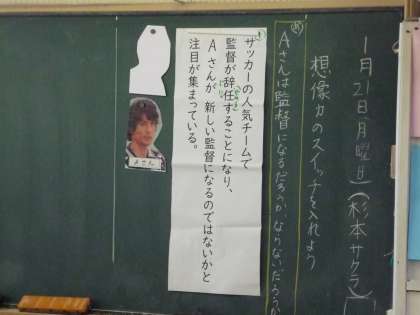 1月21日(月曜日)(杉本サクラ)
想像力のスイッチを入れよう
め
Aさんは監督になるだろうか、ならないだろうか
サッカーの人気チームで
監督が辞任することになり、
Aさんが新しい監督になるのではないかと
注目が集まっている。
Aさん